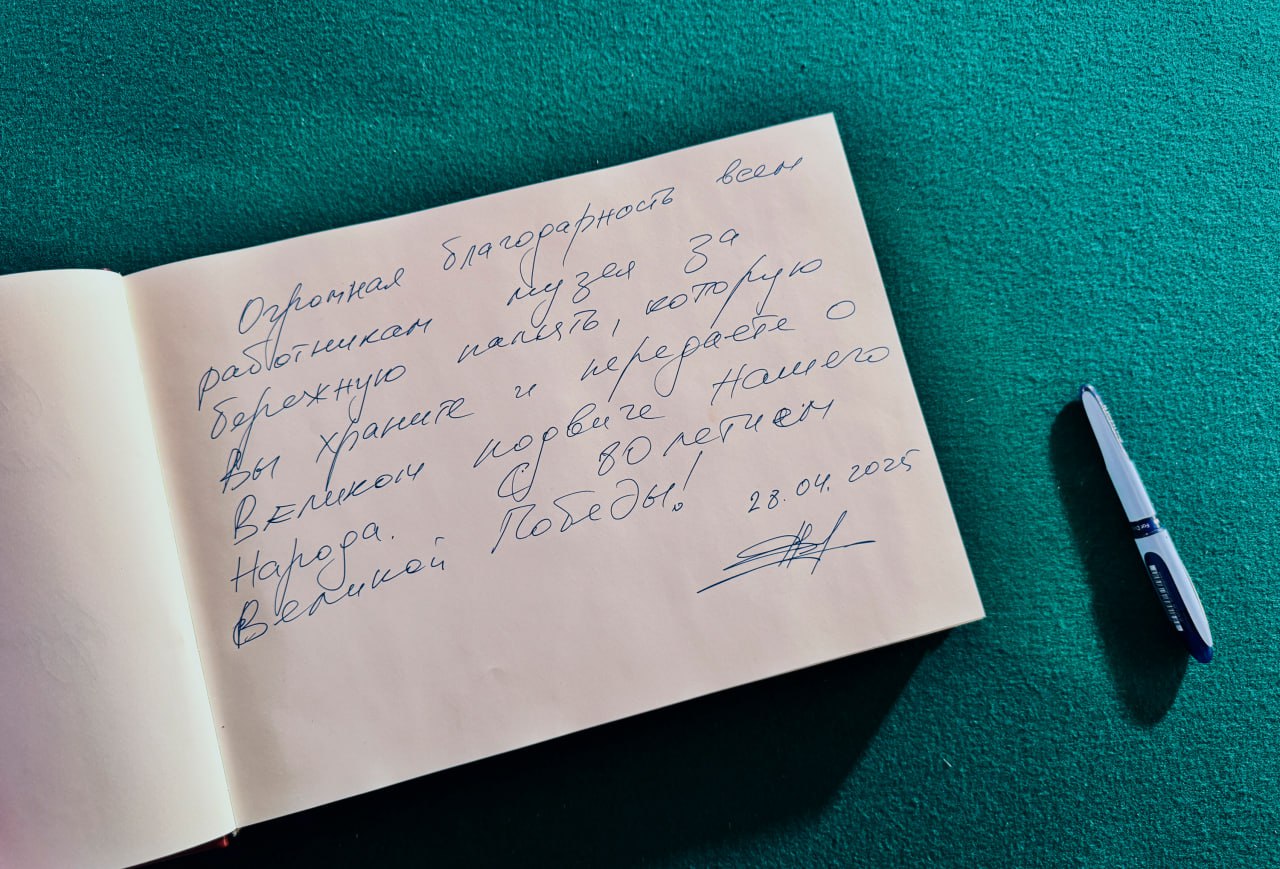 Огромная благодарность всем
работникам музея за
бережную память, которую
Вы храните и передаете о
Великом подвиге Нашего
Народа. С 80 летием
Великой Победы!
28.04.2025